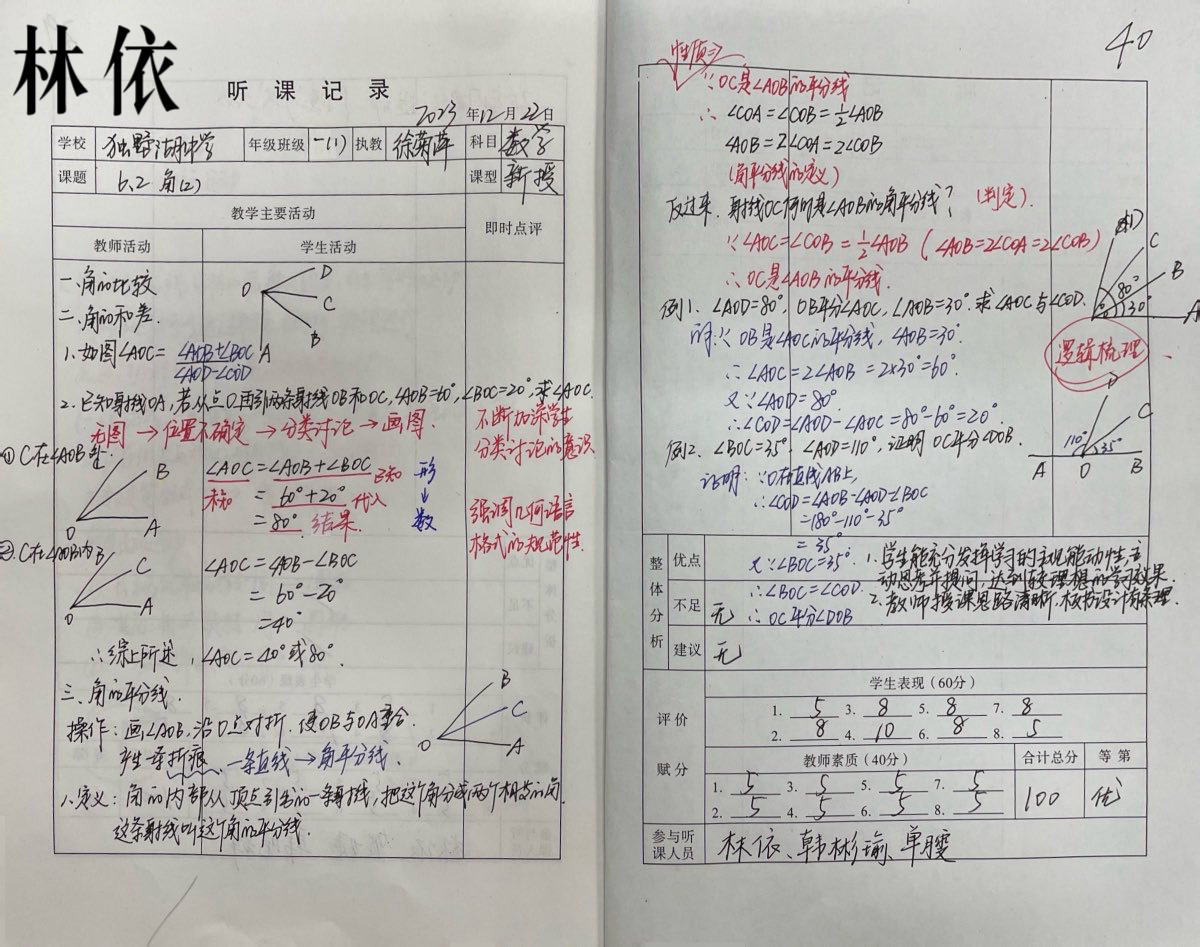 林依
听课记录
2023年12月22日
学校 独墅湖中学 年级班级 一(1) 执教 徐菊萍 科目 数学
课题 6.2 角(2) 课型 新授
教学主要活动 即时点评
教师活动 学生活动
一、角的比较
二、角的和差.
O D C B A
1、如图∠AOC = ∠AOB+∠BOC
∠AOD-∠COD
2、已知射线OA,若从点O再引两条射线OB和OC,∠AOB=60°,∠BOC=20°,求∠AOC.
无图→位置不确定→分类讨论→画图.
不断加深学生
分类讨论的意识
① C在∠AOB外
B A O
∠AOC=∠AOB+∠BOC 已知 形
未知 = 60°+20° 代入 ↓
= 80° 结果. 数
强调几何语言
格式的规范性.
② C在∠AOB内
B C A O
∠AOC=∠AOB-∠BOC
= 60°-20°
=40°
∴综上所述,∠AOC=40°或80°.
三、角的平分线.
操作:画∠AOB,沿O点对折,使OB与OA重合.
产生一条折痕、一条直线→角平分线.
B C A O
1、定义:角的内部从顶点引出的一条射线,把这个角分成两个相等的角.
这条射线叫这个角的平分线.
40
性质⇒
∵OC是∠AOB的平分线
∴ ∠COA=∠COB=½∠AOB
∠AOB=2∠COA=2∠COB
(角平分线的定义)
反过来,射线OC何时是∠AOB的角平分线? (判定).
∵∠AOC=∠COB=½∠AOB (∠AOB=2∠COA=2∠COB)
∴OC是∠AOB的平分线.
C B A 80° 30°
例1、∠AOD=80°,OB平分∠AOC,∠AOB=30°.求∠AOC与∠COD.
解:∵OB是∠AOC的平分线,∠AOB=30°.
∴∠AOC=2∠AOB=2×30°=60°.
又∵∠AOD=80°
∴∠COD=∠AOD-∠AOC=80°-60°=20°.
逻辑梳理
例2、∠BOC=35°,∠AOD=110°,证明OC平分∠DOB.
D C 110° 35° A O B
证明:∵O在直线AB上,
∴∠COD=∠AOB-∠AOD-∠BOC
=180°-110°-35°
= 35°
又∵∠BOC=35°.
∴∠BOC=∠COD.
∴OC平分∠DOB
整体分析
优点 1、学生能充分发挥学习的主观能动性,主
动思考并提问,达到较理想的学习效果.
2、教师授课思路清晰,板书设计有条理.
不足 无
建议 无
评价赋分
学生表现(60分)
1. 5 3. 8 5. 8 7. 8
2. 8 4. 10 6. 8 8. 5
教师素质(40分) 合计总分 等第
1. 5 3. 5 5. 5 7. 5
2. 5 4. 5 6. 5 8. 5
100 优
参与听课人员 林依、韩彬瑜、单雯